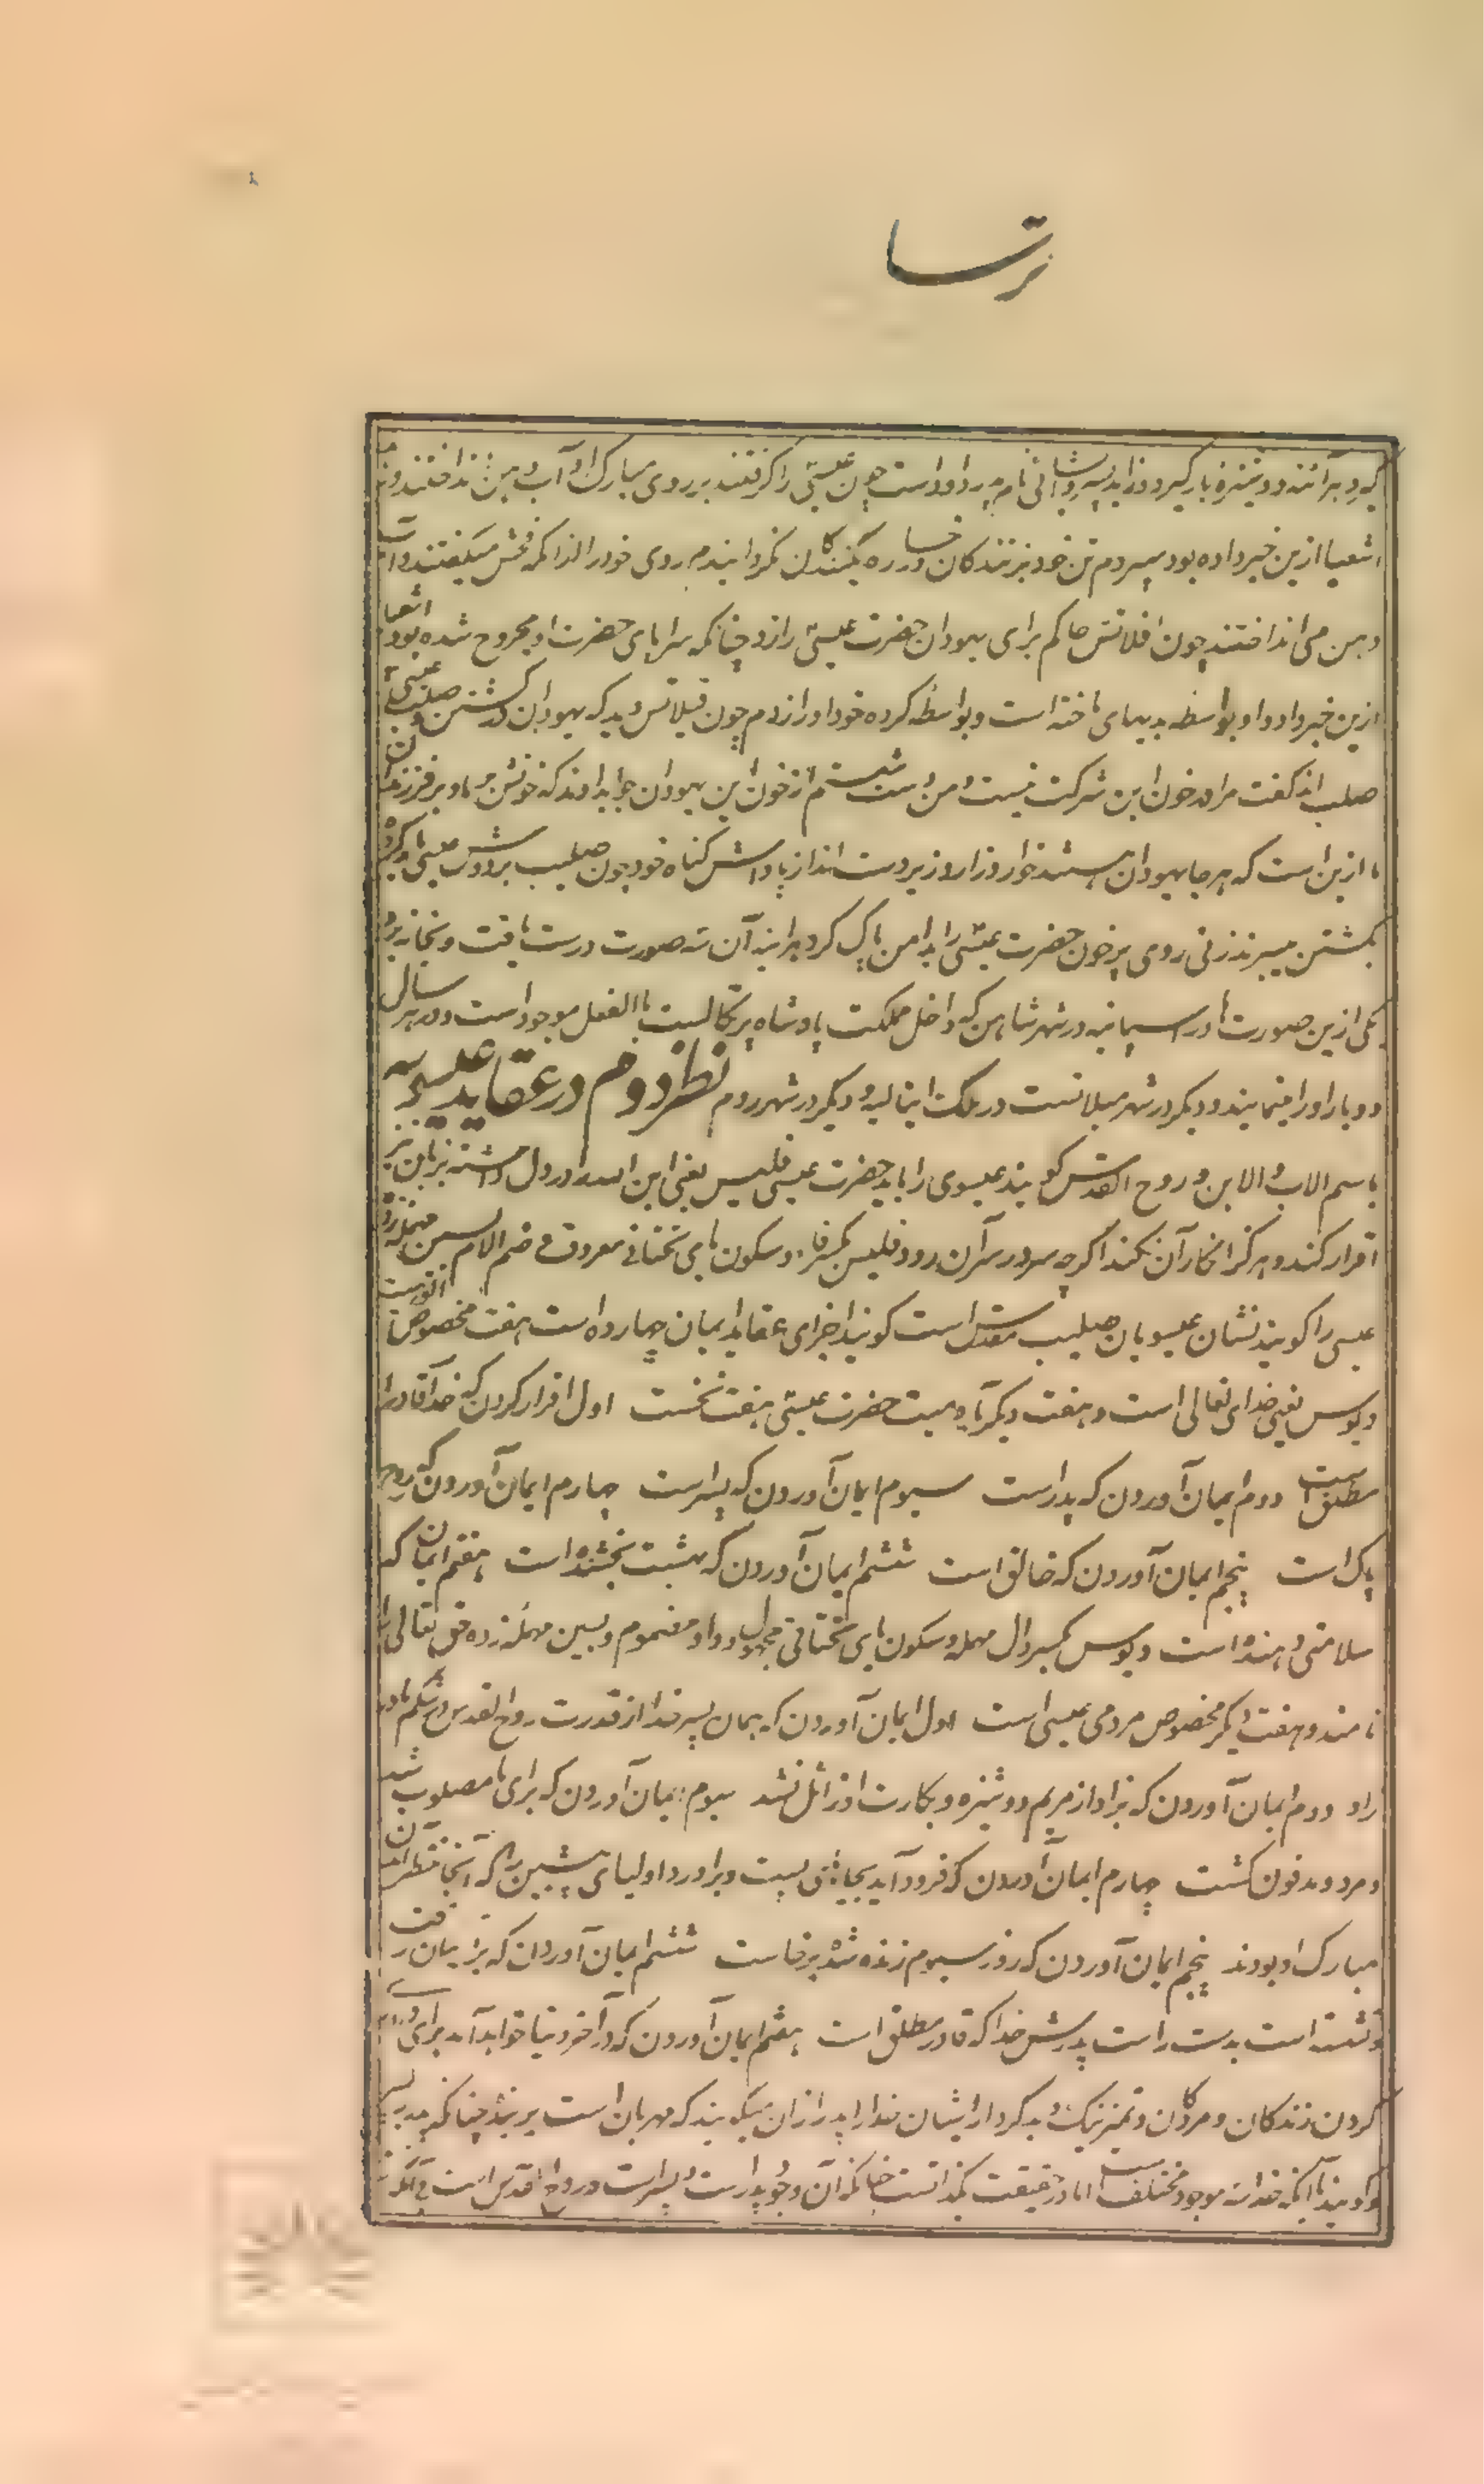 ترسا
که هر آئنه دوشیزه بار گیرد و زاید پسر و اشانی نام پدر او داد است چون عیسی را گرفتند بر روی مبارک او آب دهن انداختند و
اشعیا ازین خبر داده بود سپردم تن خود بزنندگان و رخساره بکنندگان نگردانیدم روی خود را از آنکه فحش میگفتند و آب
دهن می انداختند چون افلاتس حاکم برای یهودان حضرت عیسی را زد چنانکه سراپای حضرت او مجروح شده بود اشعیا
ازین خبر داد و او بواسطه بدیهای ما خسته است و بواسطه کرده خود او را زدم چون فیلاتس دید که یهودان در کشتن و صلیب عیسی
صلب اند گفت مرا در خون این شرکت نیست و من دست شستم از خون این یهودان جواب دادند که خونش بر ما و بر فرزندان
ما ازین است که هر جا یهودان هستند خوار و زار و زیردست اند از پاداش گناه خود چون صلیب بر دوش عیسی
بکشتن میبردند زنی روی پرخون حضرت عیسی را بدامن پاک کرد هر اینه آن سه صورت درست یافت و بخانه برد
یکی ازین صورت ها در اسپانیه در شهر شاهن که داخل مملکت پادشاه پرتکال است بالفعل موجود است و در هر سال
دو بار او را مینمایند و دیگر در شهر میلانست در ملک ایتالیه و دیگر در شهر روم نظر دوم در عقاید عیسویه
باسم الاب و الابن و روح القدس گویند عیسوی را باید حضرت عیسی فلیس یعنی ابن الله را در دل داشته بزبان نیز
اقرار کند و هرگز انکار آن نکند اگرچه سر در سر آن رود فلیس بکسر فا و سکون یای تحتانی معروف و ضم اللام سین مهمله زده
عیسی را گویند نشان عیسویان صلیب مقدس است گویند اجزای عقاید ایمان چهارده است هفت مخصوص الوهیت
دیوس یعنی خدای تعالی است و هفت دیگر بآدمیت حضرت عیسی هفت نخست اول اقرار کردن که خدا قادر
مطلق است دوم ایمان آوردن که پدر است سیوم ایمان آوردن که پسر است چهارم ایمان آوردن که روح
پاک است پنجم ایمان آوردن که خالق است ششم ایمان آوردن که بهشت بخشنده است هفتم ایمان که
سلامتی دهنده است دیوس بکسر دال مهمله و سکون یای تحتانی مجهول و واو مضموم و بسین مهمله زده حق تعالی را
نامند و هفت دیگر مخصوص مردمی عیسی است اول ایمان آوردن که همان پسر خدا از قدرت روح القدس در شکم مادر
زاد دوم ایمان آوردن که بزاد از مریم دوشیزه و بکارت او زائل نشد سیوم ایمان آوردن که برای ما مصلوب شد
و مرد و مدفون گشت چهارم ایمان آوردن که فرود آمد بجای پست و برآورد اولیای پیشین را که آنجا منتظر آمدن
مبارک او بودند پنجم ایمان آوردن که روز سیوم زنده شده برخاست ششم ایمان آوردن که بر آسمان رفت
و نشسته است بدست راست پدرش خدا که قادر مطلق است هفتم ایمان آوردن که در آخر دنیا خواهد آمد برای
کردن زندگان و مردگان و تمیز نیک و بد کردار ایشان خدا را پدر ازان میگویند که مهربان است بر بنده چنانکه پدر بر پسر
و گویند با آنکه خدا سه موجود مختلف است اما در حقیقت یکذات است چنانکه آن وجود پدر است و پسر است و روح القدس است